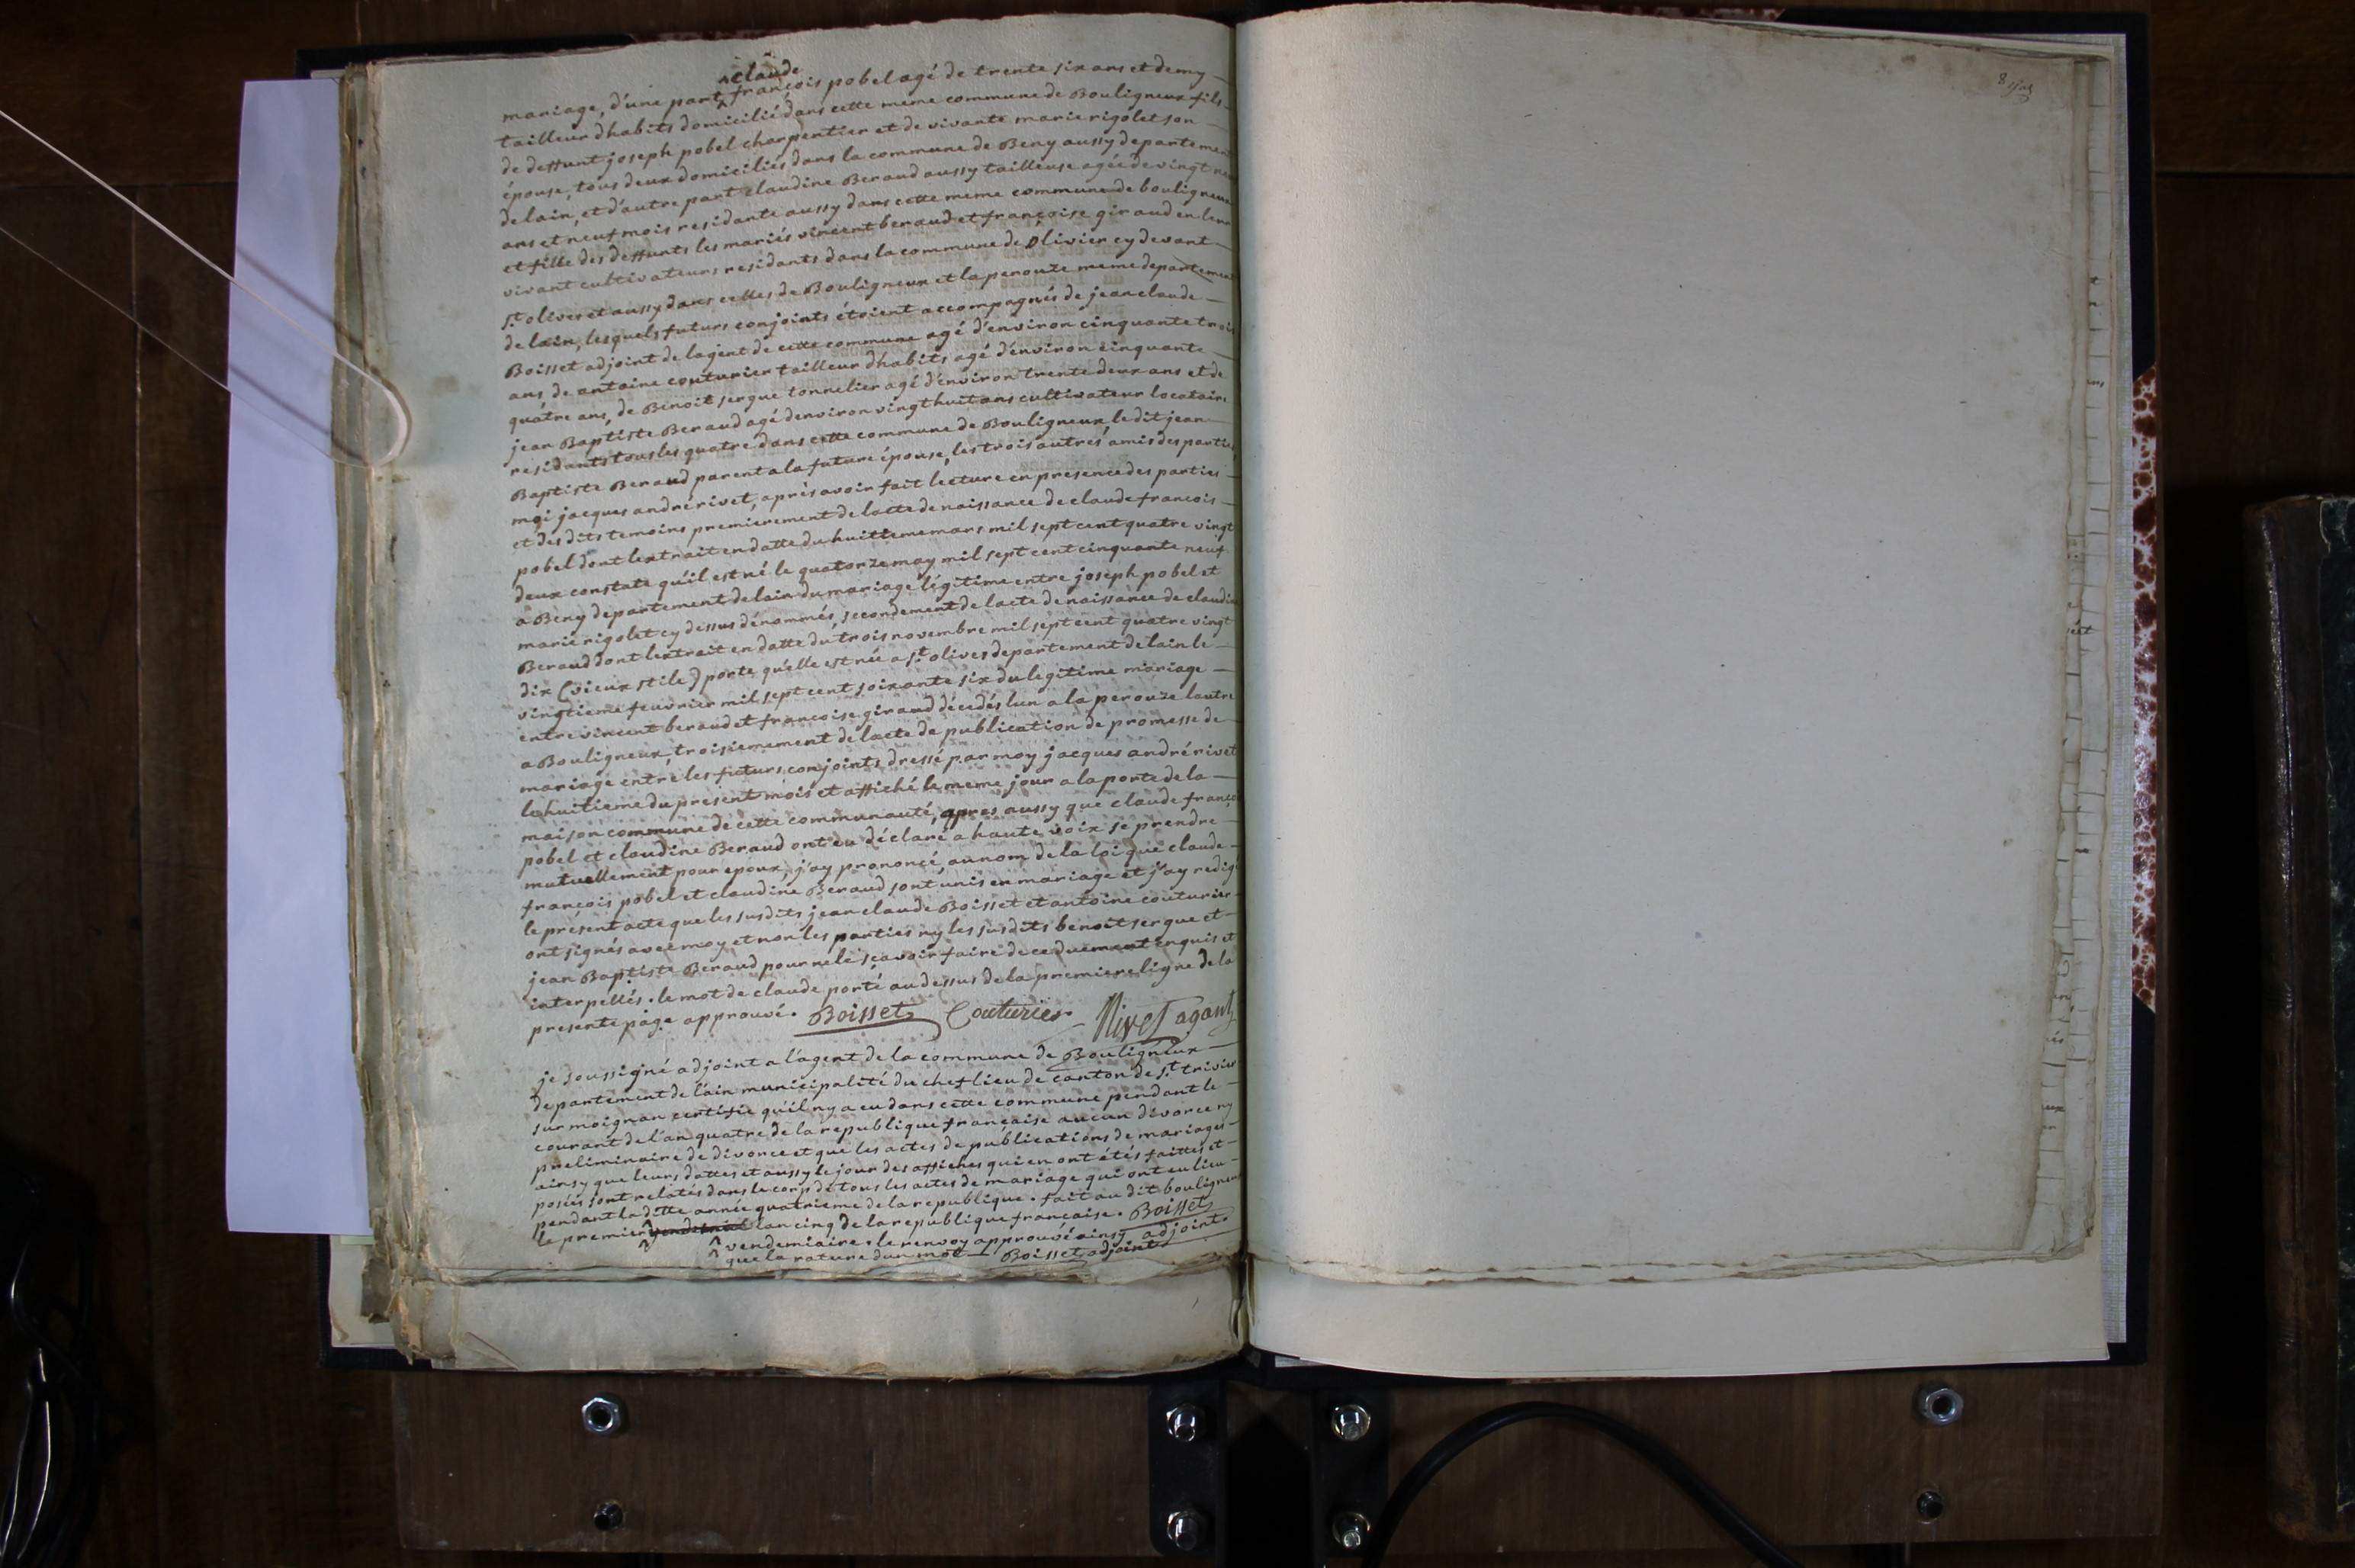 claude
mariage, d'une part, françois pobel agé de trente six ans et demy
tailleur dhabits domicilié dans cette meme commune de Bouligneux fils
de deffunt joseph pobel charpentier et de vivante marie rigolet son
épouse, tous deux domiciliés dans la commune de Beny aussy departement
de lain, et d'autre part claudine Beraud aussy tailleuse agée de vingt neuf
ans et neuf mois residante aussy dans cette meme commune de bouligneux
et fille des deffunts les mariés vincent beraud et françoise giraud en leur
vivant cultivateurs residants dans la commune de Olivier cy devant
st. olives et aussy dans celles de Bouligneux et la perouze meme departement
de lain, lesquels futurs conjoints étoient accompagnés de jean claude
Boisset adjoint de lagent de cette commune agé d'environ cinquante trois
ans, de antoine couturier tailleur dhabits agé d'environ cinquante
quatre ans, de Benoit sergue tonnelier agé d'environ trente deux ans et de
jean Baptiste Beraud agé denviron vingt huit ans cultivateur locataire
residants tous les quatre dans cette commune de Bouligneux, le dit jean
Baptiste Beraud parent a la future épouse, les trois autres amis des parties
moi jacques andré rivet, après avoir fait lecture en presence des parties
et des dits temoins premierement de lacte de naissance de claude francois
pobel dont lextrait en datte du huittieme mars mil sept cent quatre vingt
deux constate qu'il est né le quatorze may mil sept cent cinquante neuf
a Beny departement de lain du mariage légitime entre joseph pobel et
marie rigolet cy dessus dénommés, secondement de lacte de naissance de claudine
Beraud dont lextrait en datte du trois novembre mil sept cent quatre vingt
dix (vieux stile) porte qu'elle est née a st. olives departement de lain le
vingtieme feuvrier mil sept cent soixante six du legitime mariage
entre vincent beraud et francoise giraud décedés lun a la perouze lautre
a Bouligneux, troisiemement de lacte de publication de promesse de
mariage entre les futurs conjoints dressé par moy jacques andré rivet
le huitieme du present mois et affiché le meme jour a la porte de la
maison commune de cette communauté, apres aussy que claude françois
pobel et claudine Beraud ont eu déclaré a haute voix se prendre
mutuellement pour epoux, j'ay prononcé au nom de la loi que claude
françois pobel et claudine Beraud sont unis en mariage et j'ay redigé
le présent acte que les susdits jean claude Boisset et antoine couturier
ont signés avec moy et non les parties ny les susdits benoit sergue et
jean Baptiste Beraud pour ne le sçavoir faire de ce duement enquis et
interpellés. le mot de claude porté au dessus de la premiere ligne de la
presente page approuvé. Boisset Couturier Rivet agant
je soussigné adjoint a l'agent de la commune de Bouligneux
departement de l'ain municipalité du chef lieu de canton de st. trivier
sur moignan certifie qu'il ny a eu dans cette commune pendant le
courant de l'an quatre de la republique française aucun divorce ny
preliminaire de divorce et que les actes de publications de mariages
ainsy que leurs dattes et aussy le jour des affiches qui en ont étés faittes et
posées sont relatés dans le corp de tous les actes de mariage qui ont eu lieu
pendant la ditte année quatrieme de la republique. fait au dit bouligneux
le premier lan cinq de la republique francaise. Boisset
vendemiaire. le renvoy approuvé ainsy adjoint.
que la rature dun mot Boisset adjoint